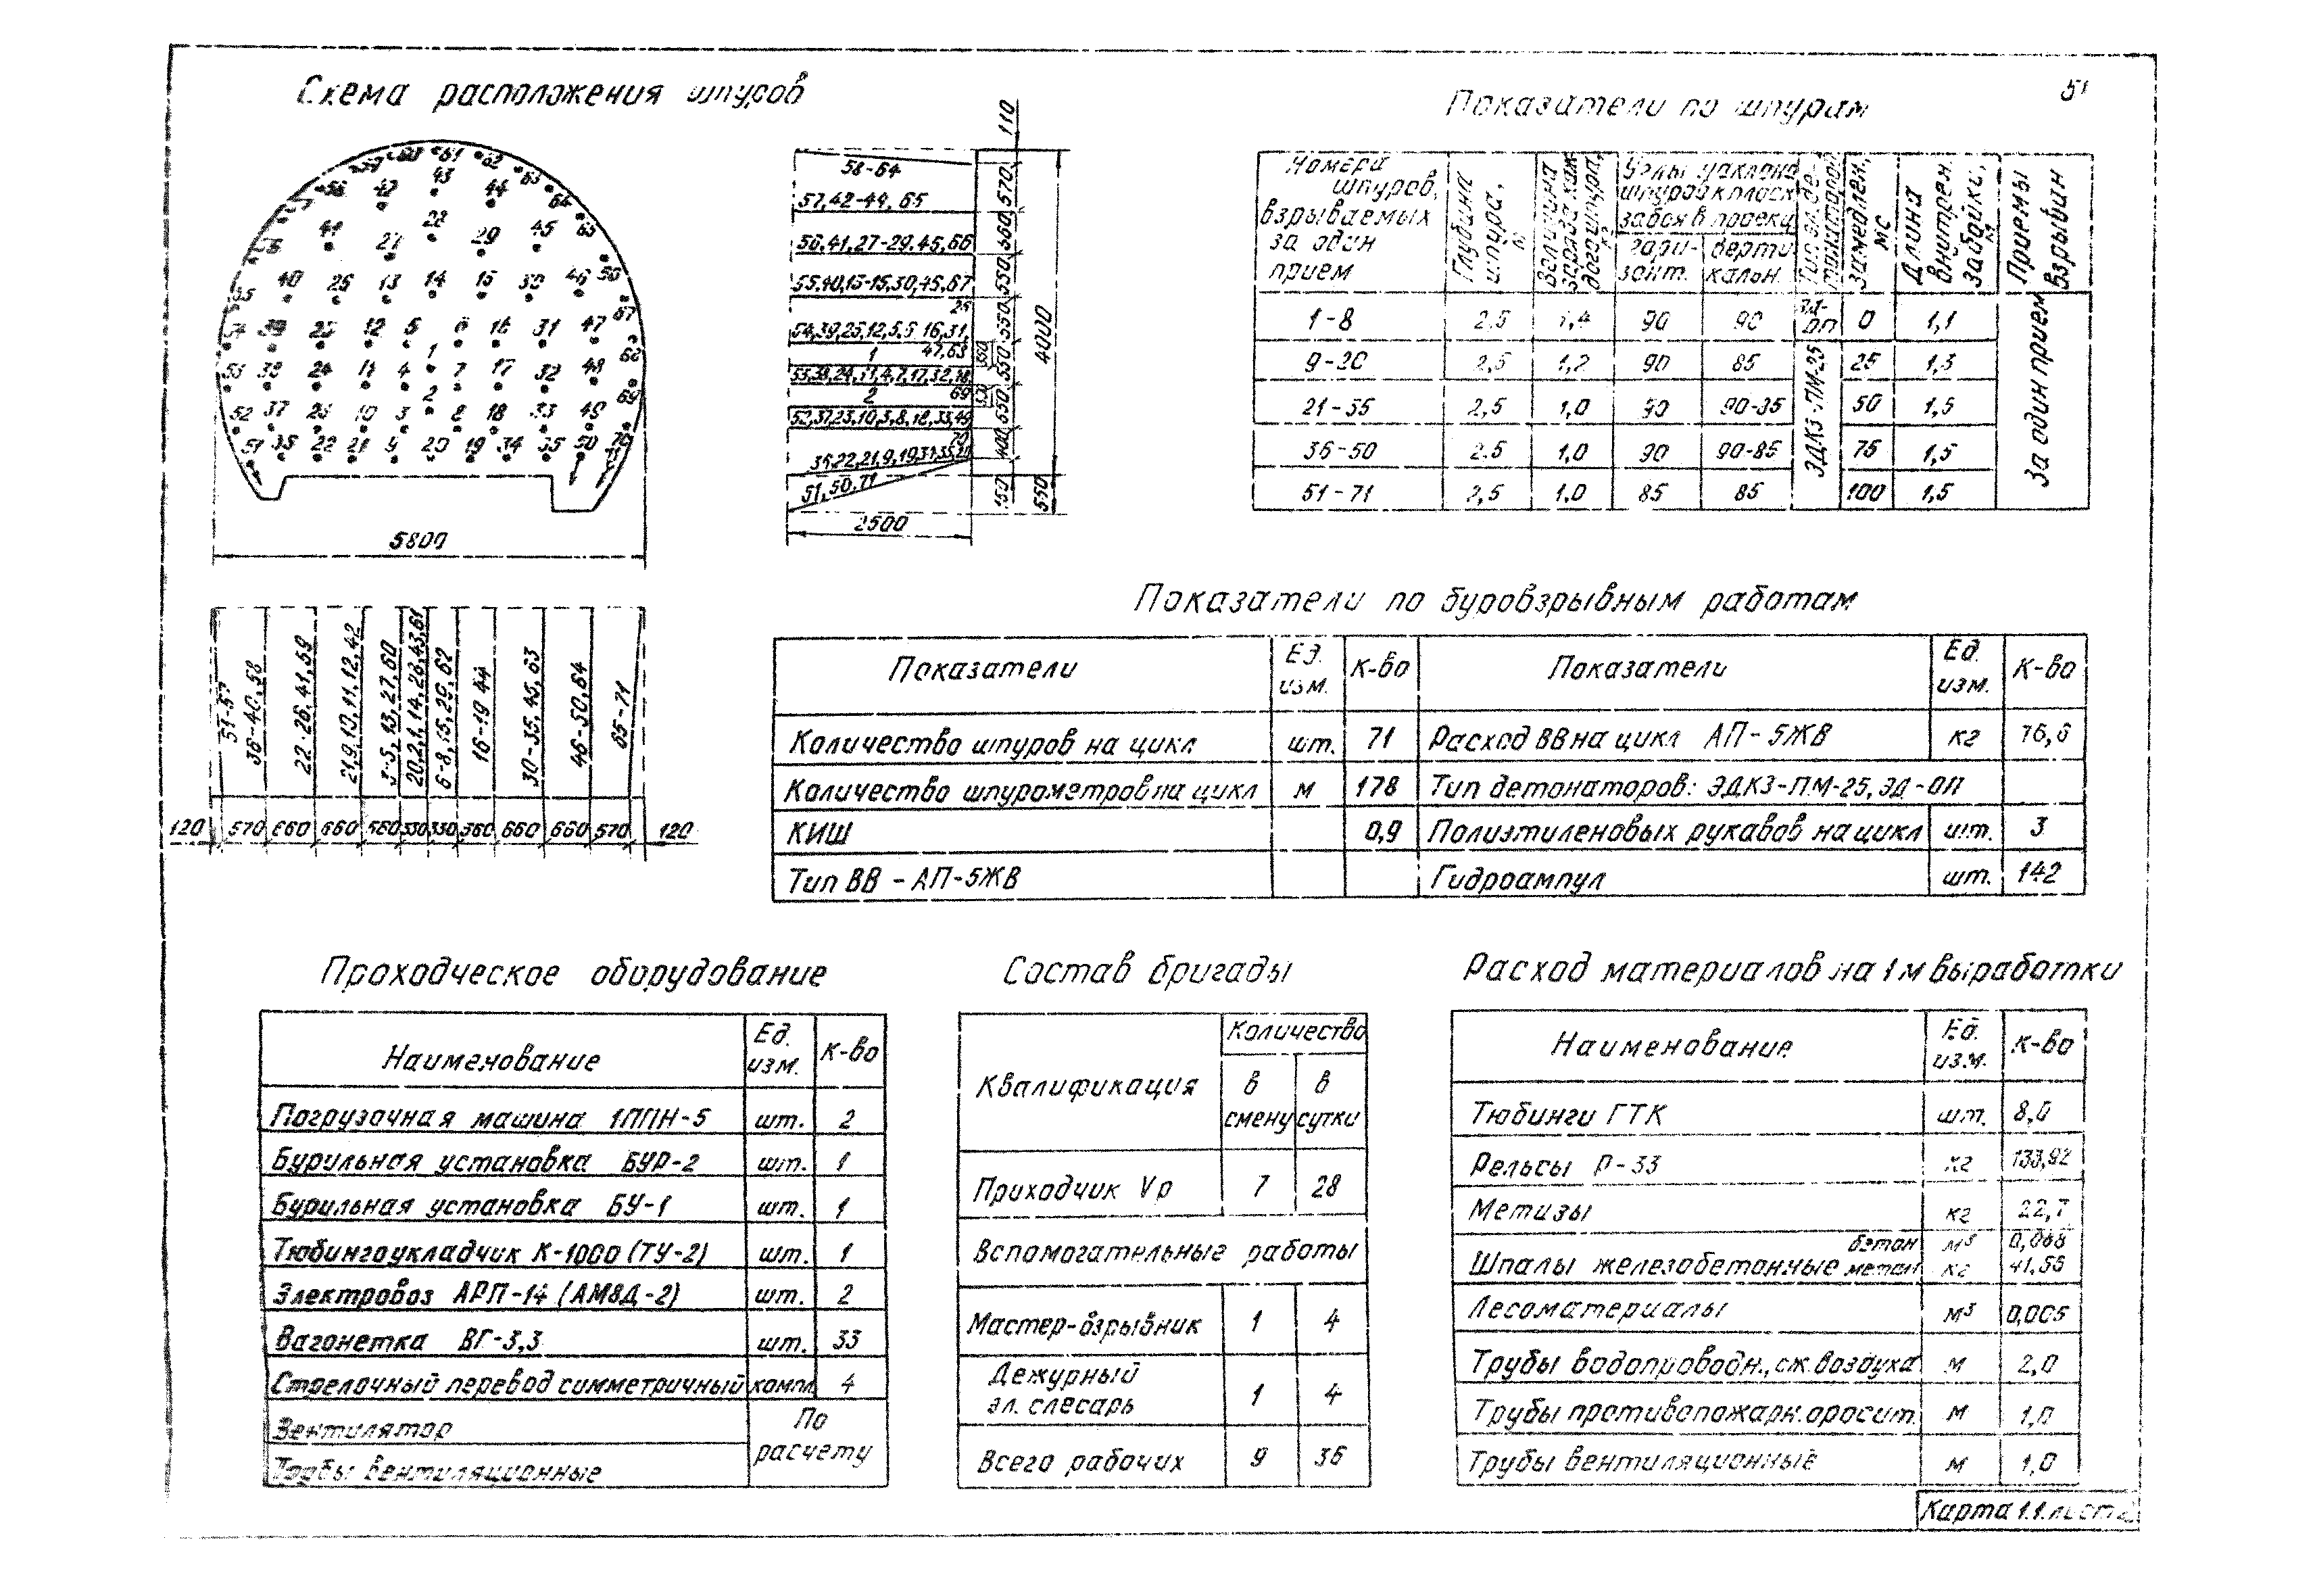 51
Схема расположения шпуров
59 60 61 62 63 64 65
58 42 43 44
41 27 28 29 45 66
56
40 26 13 14 15 30 46 50
55 67
54 39 25 12 5 6 16 31 47
1
53 38 24 11 4 7 17 32 48 68
2
52 37 23 10 3 8 18 33 49 69
51 36 22 21 9 20 19 34 35 50 70
5800
58-64
57,42-44,65
56,41,27-29,45,66
55,40,13-15,30,46,67
26
54,39,25,12,5,6,16,31,
1 47,68
53,38,24,11,4,7,17,32,48
2 69
52,37,23,10,3,8,18,33,49
70
36,22,21,9,19,34,35,20
51,50,71
2500
110
570
560
550
550
550
550
400
150
550
4000
350
51-57
36-40,58
22-26,41,59
21,9,10,11,12,42
3-5,13,27,60
20,2,1,14,28,43,61
6-8,15,29,62
16-19 44
30-35,45,63
46-50,64
65-71
120 570 660 660 560 330 330 560 660 660 570 120
Показатели по шпурам
Номера шпуров, взрываемых за один прием
Глубина шпура, м
Величина заряда каждого шпура, кг
Углы наклона шпуров к плоск. забоя в проекц.
гори-зонт.
верти-кальн.
Тип эл.де-тонаторов
замедлен., мс
Длина внутрен. забойки, м
Приемы взрывин
1-8 2,5 1,4 90 90 ЭД-ОП 0 1,1
9-20 2,5 1,2 90 85 25 1,3
21-35 2,5 1,0 90 90-85 50 1,5
36-50 2,5 1,0 90 90-85 75 1,5
51-71 2,5 1,0 85 85 100 1,5
ЭДКЗ-ПМ-25
За один прием
Показатели по буровзрывным работам
Показатели Ед. изм. К-во Показатели Ед. изм. К-во
Количество шпуров на цикл шт. 71 Расход ВВ на цикл АП-5ЖВ кг 76,6
Количество шпурометров на цикл м 178 Тип детонаторов: ЭДКЗ-ПМ-25, ЭД-ОП
КИШ 0,9 Полиэтиленовых рукавов на цикл шт. 3
Тип ВВ - АП-5ЖВ Гидроампул шт. 142
Проходческое оборудование
Наименование Ед. изм. К-во
Погрузочная машина 1ППН-5 шт. 2
Бурильная установка БУР-2 шт. 1
Бурильная установка БУ-1 шт. 1
Тюбингоукладчик К-1000 (ТУ-2) шт. 1
Электровоз АРП-14 (АМ8Д-2) шт. 2
Вагонетка ВГ-3,3 шт. 33
Стрелочный перевод симметричный компл. 4
Вентилятор По
Трубы вентиляционные расчету
Состав бригады
Квалификация Количество
в смену в сутки
Приходчик Vр 7 28
Вспомогательные работы
Мастер-взрывник 1 4
Дежурный
эл. слесарь 1 4
Всего рабочих 9 36
Расход материалов на 1м выработки
Наименование Ед. изм. К-во
Тюбинги ГТК шт. 8,0
Рельсы Р-33 кг 133,92
Метизы кг 22,7
бетон м³ 0,068
Шпалы железобетонные метал кг 41,56
Лесоматериалы м³ 0,005
Трубы водопроводн., сж. воздуха м 2,0
Трубы противопожарн. оросит. м 1,0
Трубы вентиляционные м 1,0
Карта 1.1. лист 2